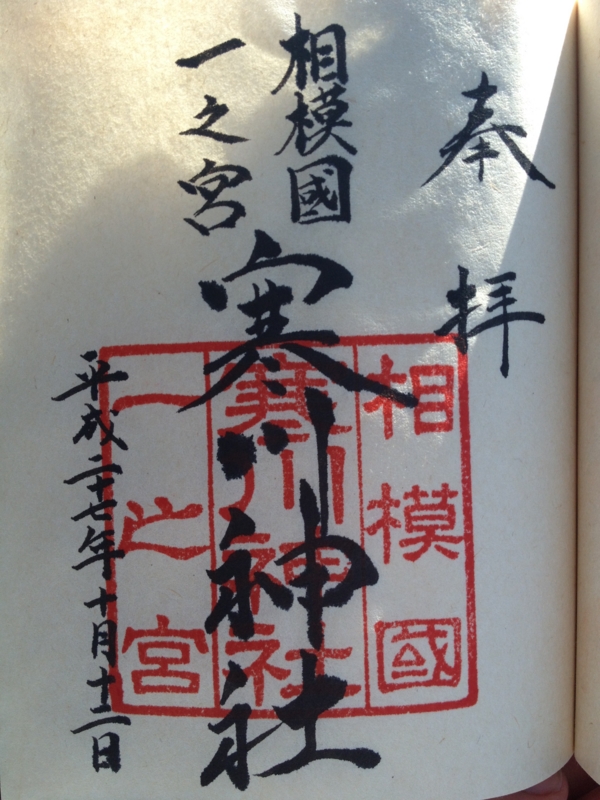 奉拝
相模國
一之宮
寒川神社
平成二十七年十月十二日
相模國
寒川神社
一之宮